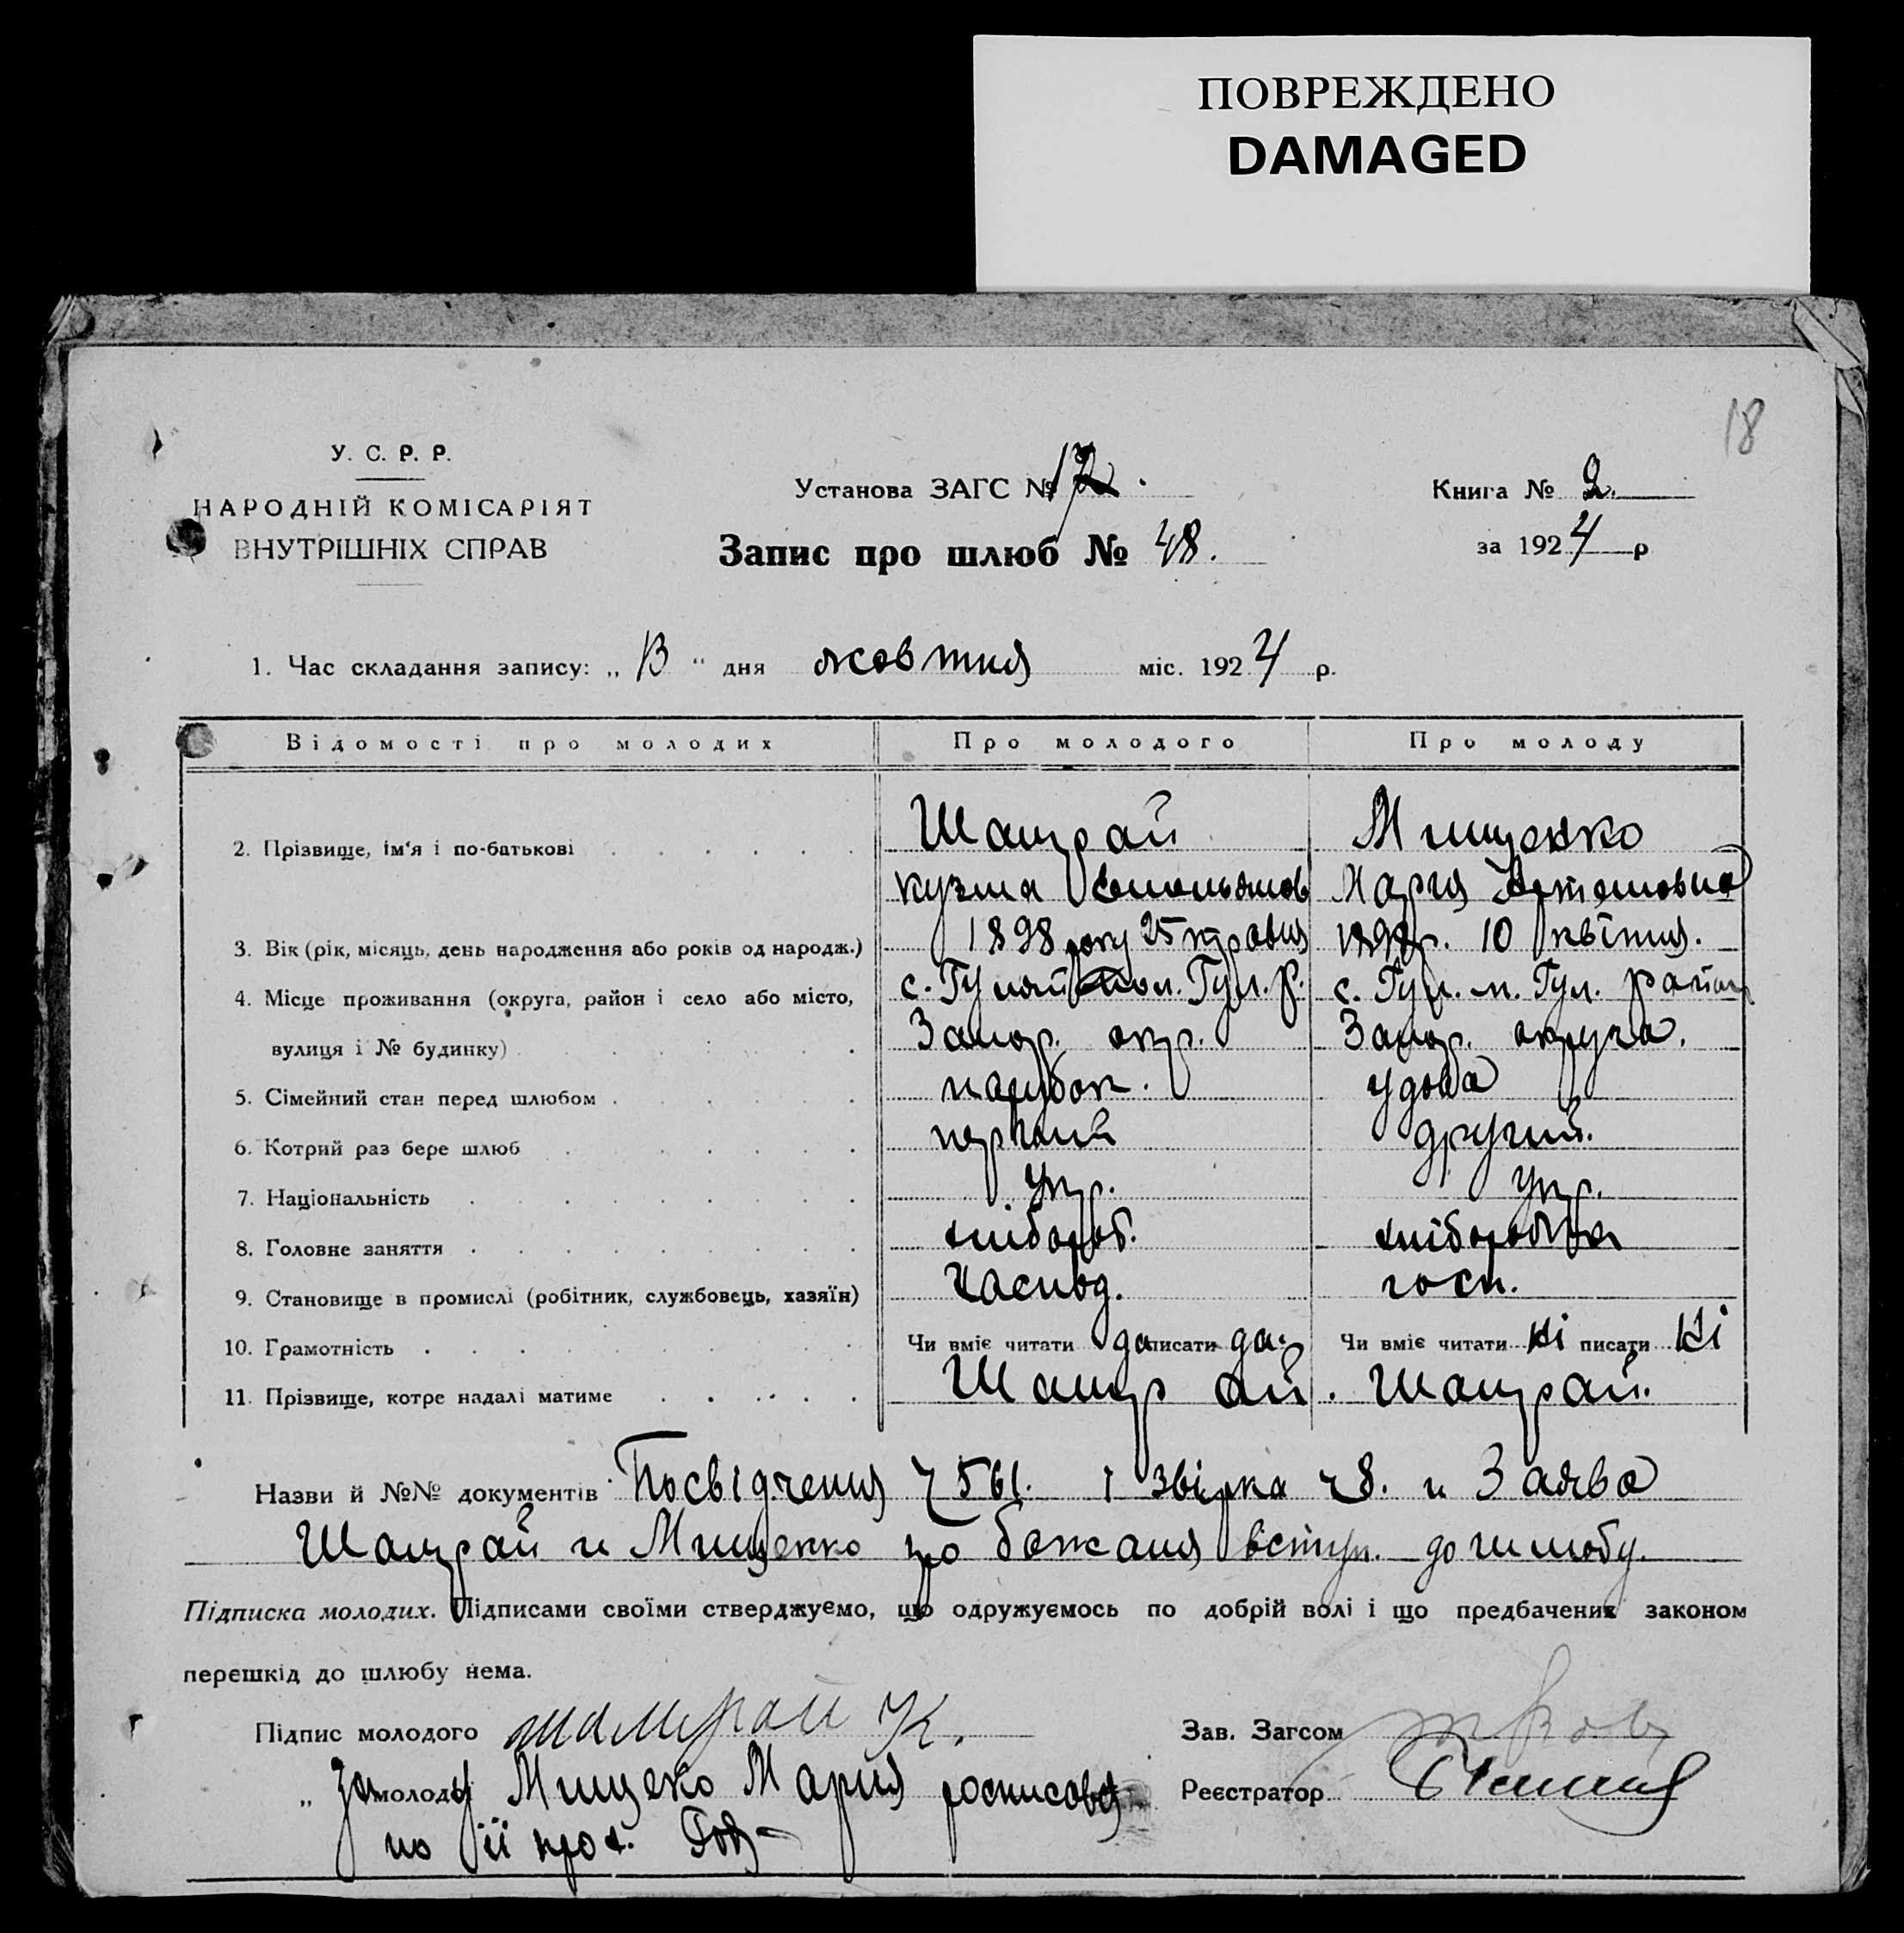 ПОВРЕЖДЕНО
DAMAGED
18
У. С. Р. Р.
НАРОДНІЙ КОМІСАРІЯТ
ВНУТРІШНІХ СПРАВ
Установа ЗАГС №
Запис про шлюб № 48.
Книга № 2.
за 1924 р
1. Час складання запису: „ 13 " дня жовтня міс. 1924 р.
Відомості про молодих Про молодого Про молоду
2. Прізвище, ім'я і по-батькові Шапрай Мищенко
кузма Мария
3. Вік (рік, місяць, день народження або років од народж.) 1898 року 25 травня 10 квітня.
4. Місце проживання (округа, район і село або місто, с. Гул. р. с. Гул. п. Гул. район
вулиця і № будинку) Запор. окр. Запор. округа.
5. Сімейний стан перед шлюбом парубок. удова
6. Котрий раз бере шлюб перший другий.
7. Національність укр. укр.
8. Головне заняття хлібороб. хліборобка
9. Становище в промислі (робітник, службовець, хазяїн) госп.
10. Грамотність Чи вміє читати да писати да. Чи вміє читати ні писати ні
11. Прізвище, котре надалі матиме Шапрай. Шапрай.
Назви й №№ документів Посвідчення 7561. і звірка 48. и Заява
Шапрай и Мищенко про бажаня вступ. до шлюбу.
Підписка молодих. Підписами своїми стверджуємо, що одружуємось по добрій волі і що предбачених законом
перешкід до шлюбу нема.
Підпис молодого Шапрай К. Зав. Загсом
„ за молоду Мищеко Мария росписався Реєстратор
по її прох.